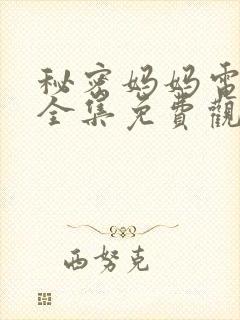 秘密妈妈電
全集免費觀
西努克